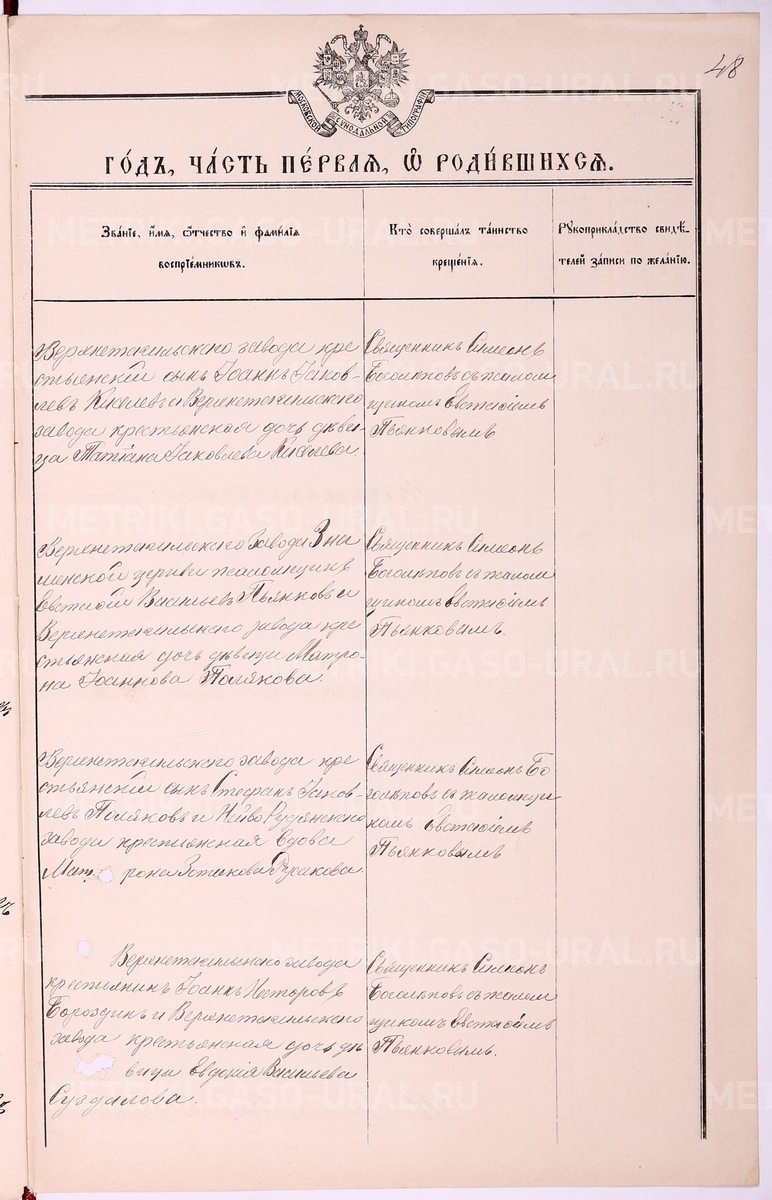 48
МОСКОВСКОЙ СѴНОДАЛЬНОЙ ТИПОГРАФІИ
ГО́ДЪ, ЧА́СТЬ ПЕ́РВАЯ, Ѽ РОДИ́ВШИХСЯ.
Зва́ніе, и҆́мя, ѻ҆́тчество и҆ фами́лія
воспріе́мникѡвъ.
Кто̀ соверша́лъ та́инство
креще́нія.
Рꙋкоприкла́дство свидѣ́-
телей за́писи по жела́нію.
Верхнетагильскаго завода кре
стьянскій сынъ Іоаннъ Іаков-
левъ Киселевъ и Верхнетагильскаго
завода крестьянская дочь дѣви-
ца Татіана Іаковлева Киселева
Священникъ Симеонъ
Боголѣповъ съ псалом
щикомъ Евстафіемъ
Пьянковымъ
Верхнетагильскаго завода Зна
менской церкви псаломщикъ
Евстафій Васильевъ Пьянковъ и
Верхнетагильскаго завода кре
стьянская дочь дѣвица Матро-
на Іоаннова Полякова.
Священникъ Симеонъ
Боголѣповъ съ псалом
щикомъ Евстафіемъ
Пьянковымъ.
Верхнетагильскаго завода кре
стьянскій сынъ Стефанъ Іаков-
левъ Поляковъ и Нейво Рудянскаго
завода крестьянская вдова
Мат рона Русакова.
Священникъ Симеонъ Бо
голѣповъ съ псаломщи
комъ Евстафіемъ
Пьянковымъ
Верхнетагильскаго завода
крестьянинъ Іоаннъ Несторовъ
Бороздинъ и Верхнетагильскаго
завода крестьянская дочь дѣ
вица Евдокія Васильева
Суздалова.
Священникъ Симеонъ
Боголѣповъ съ псалом
щикомъ Евстафіемъ
Пьянковымъ.
METRIKI.GASO-URAL.RU